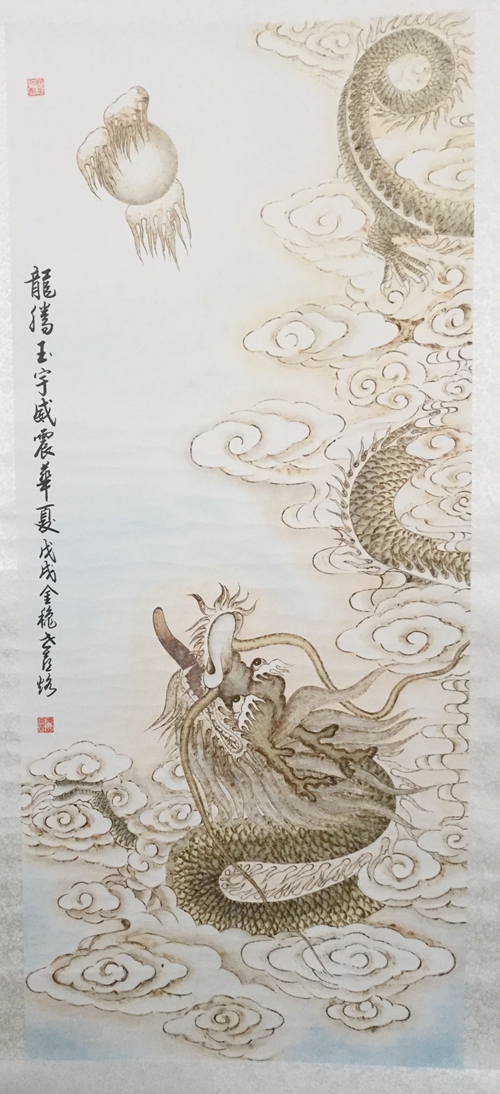 龍騰玉宇威震華夏戊戌金秋